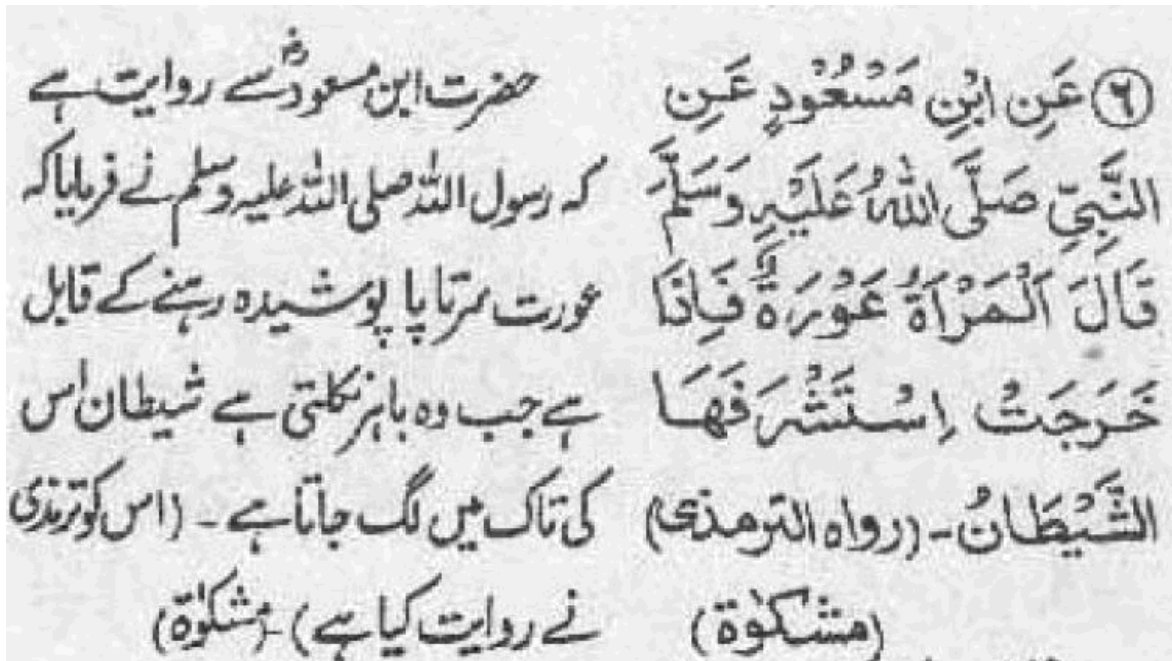 ۶ عَنِ ابْنِ مَسْعُوْدٍ عَنِ
النَّبِيِّ صَلَّى اللهُ عَلَيْهِ وَسَلَّمَ
قَالَ اَلْمَرْاَةُ عَوْرَةٌ فَاِذَا
خَرَجَتْ اِسْتَشْرَفَهَا
الشَّيْطَانُ - (رواه الترمذى)
(مشكوٰة)
حضرت ابن مسعودؓ سے روایت ہے
کہ رسول اللہ صلی اللہ علیہ وسلم نے فرمایا کہ
عورت سرتاپا پوشیدہ رہنے کے قابل
ہے جب وہ باہر نکلتی ہے شیطان اس
کی تاک میں لگ جاتا ہے - (اس کو ترمذی
نے روایت کیا ہے) - (مشکوٰۃ)